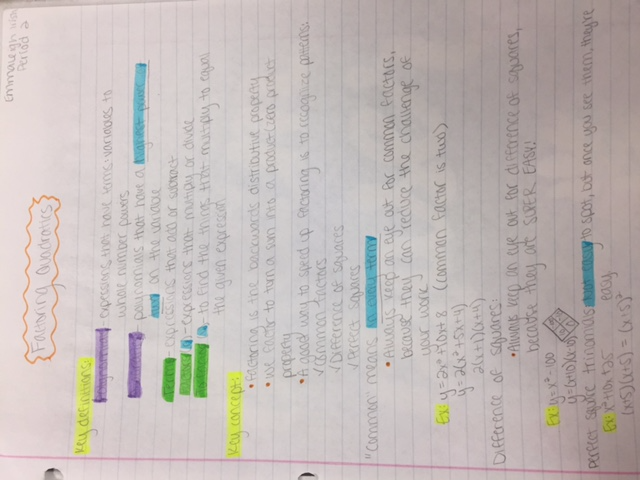 Emmaleigh
Period 2
Factoring Quadratics
Key definitions:
- expressions that have terms: variables to
whole number powers
- polynomials that have a highest power
on the variable
- expressions that add or subtract
- expressions that multiply or divide
- to find the things that multiply to equal
the given expression
Key concept:
• Factoring is the backwards distributive property
• use factor to turn a sum into a product (zero product
property
• A good way to speed up factoring is to recognize patterns.
√ Common factors
√ Difference of squares
√ Perfect squares
"Common" means in every term
• Always keep an eye out for common factors,
because they can reduce the challenge of
your work
Ex: y = 2x² + 10x + 8 (common factor is two)
y = 2(x² + 5x + 4)
2(x+1)(x+4)
Difference of squares:
• Always keep an eye out for difference of squares,
because they are SUPER EASY!
Ex: y = x² - 100
y = (x+10)(x-10)
perfect square trinomials to spot, but once you see them, they're
easy
Ex: x² + 10x + 25
(x+5)(x+5) = (x+5)²